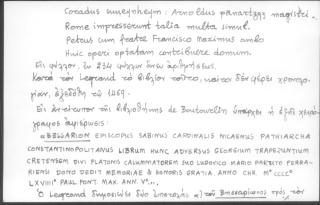 Coradus suueynheym: Arnoldus panartzgs magistri.
Rome impresserunt talia multa simul.
Petrus cum fratre Francisco Maximus ambo
Huic operi optatam contribuere domum.
Εἰς φύλλον, ἐκ 234 φύλλων ἄνευ ἀριθμήσεως.
Κατὰ τὸν Legrand τὸ βιβλίον τοῦτο, καίτοι δὲν φέρει χρονολο-
γίαν, ἐξεδόθη τῷ 1469.
Εἰς ἀντίτυπον τῆς βιβλιοθήκης de Boutourlin ὑπάρχει ἡ ἑξῆς χειρό-
γραφος ἀφιέρωσις:
«BESSARION EPISCOPUS SABINUS CARDINALIS NICAENUS PATRIARCHA
CONSTANTINOPOLITANUS LIBRUM HUNC ADVERSUS GEORGIUM TRAPEZUNTIUM
CRETENSEM DIVI PLATONIS CALUMNIATOREM SUO LUDOVICO MARIO PARUTO FERRA-
RIENSI DONO DEDIT MEMORIAE & HONORIS GRATIA ANNO CHR. M° CCCC°
LXVIIII° PAUL. PONT. MAX. ANN. V°
Ὁ Legrand δημοσιεύει δύο ἐπιστολὰς τοῦ Βησσαρίωνος πρὸς τὸν